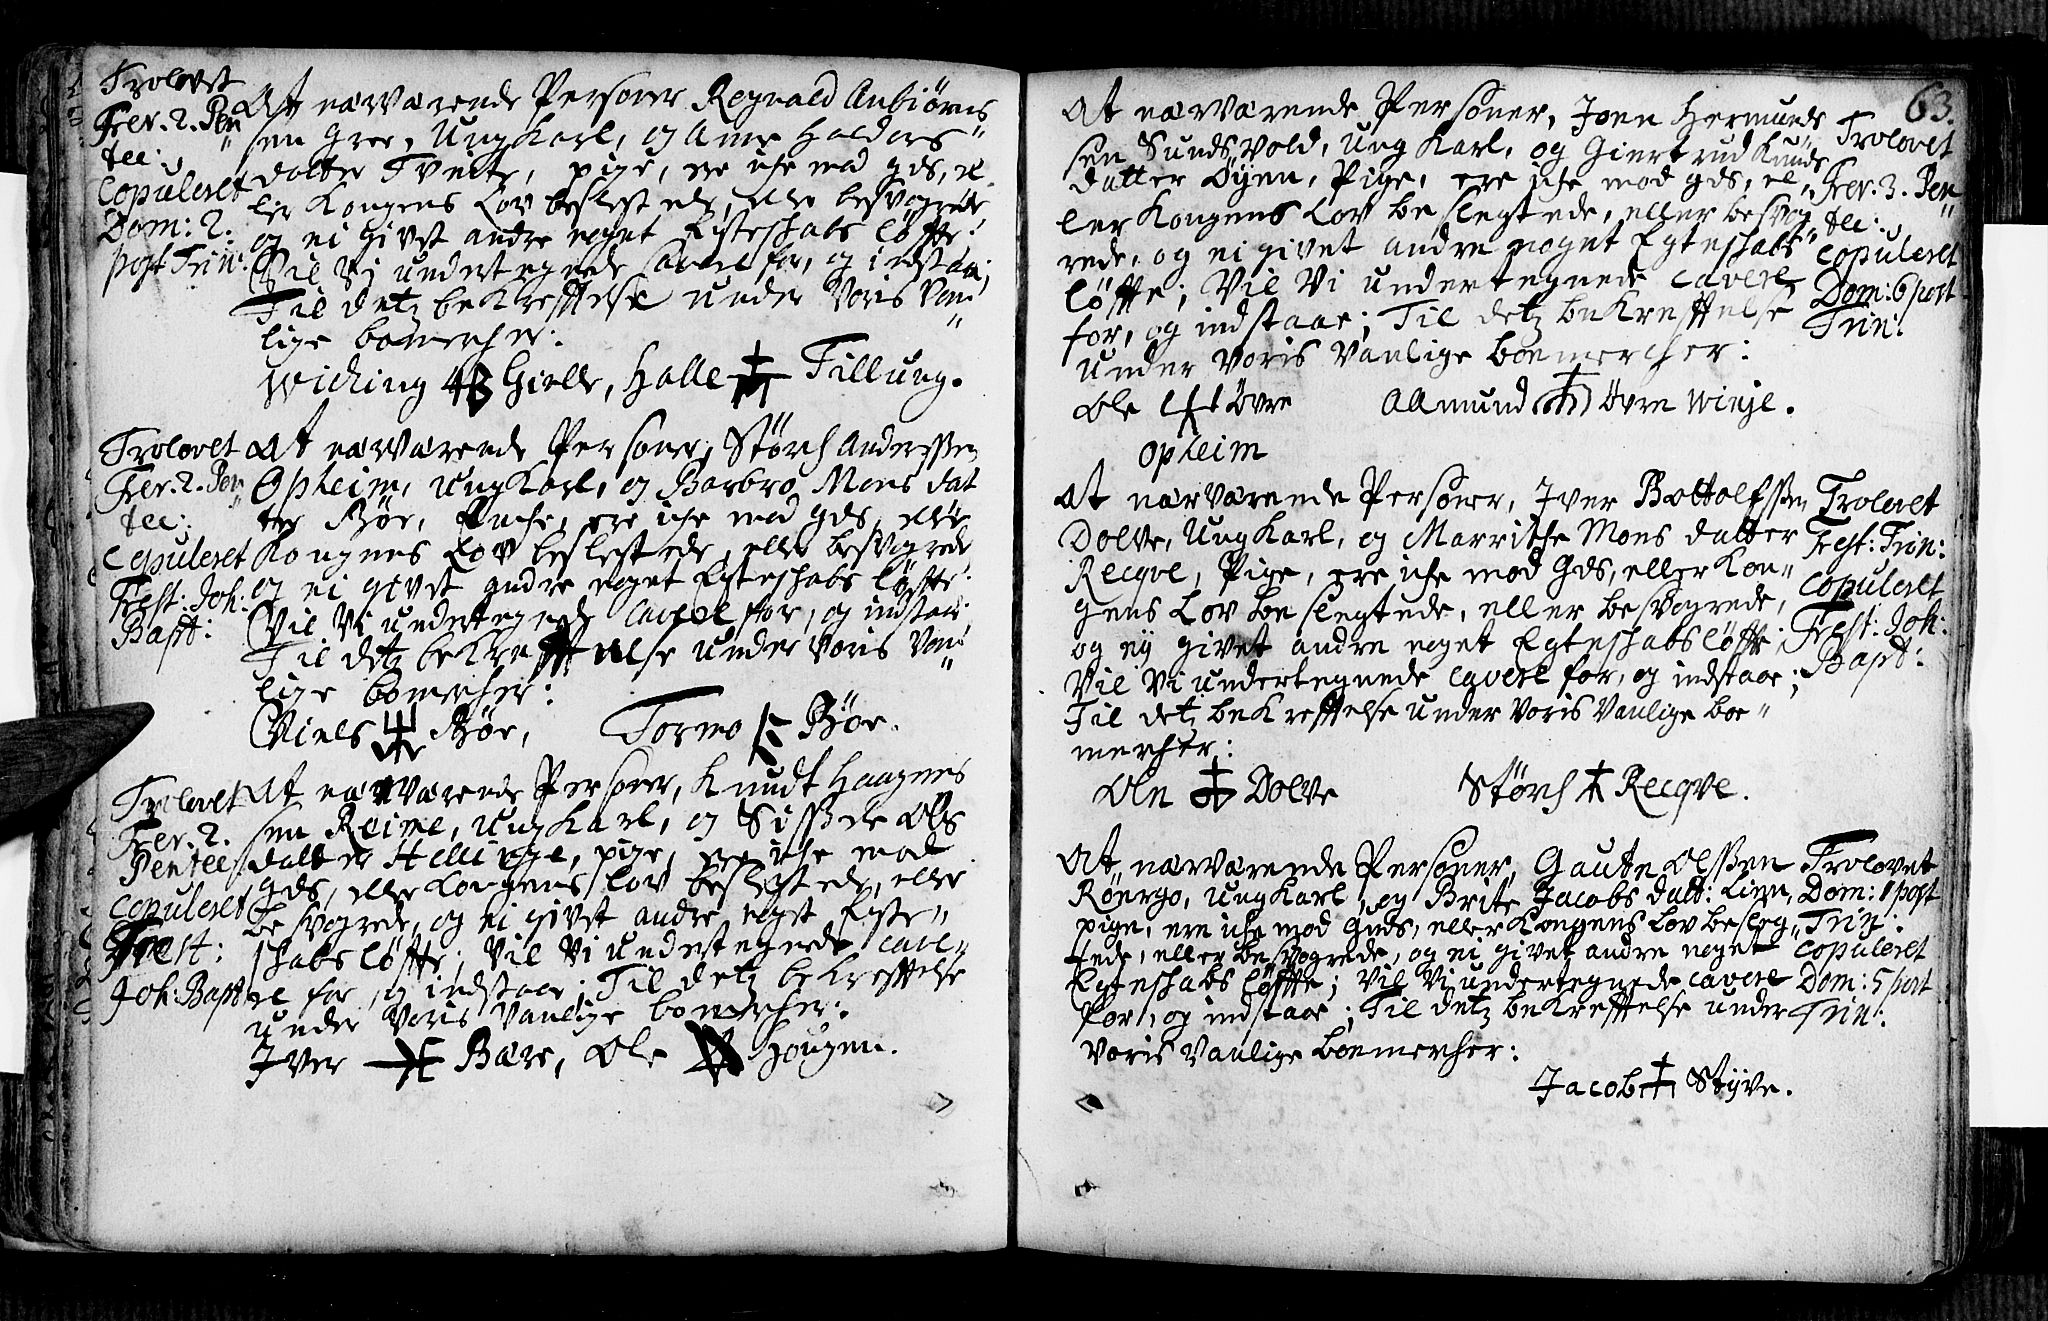 Trolovet
Fer. 2. Pen
tec:
Copuleret
Dom: 2.
post Trin:
At nærværende Personer Regnald Anbiørns
sen Gree, Ung Karl, og Anna Haldors
datter Tveite, pige, ere iche mod Gds, el
ler Kongens Lov beslegtede, eller besvogrede
og ei givet andre noget Egteschabs løffte;
Vil Vi undertegnede cavere for, og indstaa;
Til detz bekrefftelse under Voris Van
lige bomercher:
Wiching Gielle, Halle Tillung.
Trolovet
Fer. 2. Pen
tec:
Copuleret
Fest: Joh:
Bapt:
At nærværende Personer, Størch Anderssen
Opheim, Ung Karl, og Barbro Mons dat
ter Bøe, Enche, ere iche mod Gds, eller
Kongens Lov beslegtede, eller besvogrede
og ei givet andre noget Egteschabs løffte;
Vil Vi undertegnede cavere for, og indstaae;
Til detz bekrefftelse under Voris Van
lige bomercher:
Niels Bøe, Tormo Bøe.
Trolovet
Fer. 2.
Pentec:
Copuleret
Fest:
Joh: Bapt
At nærværende Personer, Knudt Haagnes
sen Reime, Ung Karl, og Sissele Ols
datter Helliche, pige, ere iche mod
Gds, eller Kongens lov beslegtede, eller
besvogrede, og ei givet andre noget Egte
schabs løffte; Vil Vi undertegnede cave
re for, og indstaae; Til detz bekrefftelse
under Voris Vanlige bomercher:
Iver Bære, Ole Hougen.
63.
At nærværende Personer, Joen Hermunds
sen Sundsvold, Ung Karl, og Giertrud Knuds
datter Øÿen, Pige, ere iche mod gds, el
ler Kongens Lov beslegtede, eller besvog
rede, og ei givet andre noget Egteschabs
løffte; Vil Vi undertegnede cavere
for, og indstaae; Til detz bekrefftelse
under Voris Vanlige boemercher:
Ole Øvre Aamund Øvre Winje.
Opheim
Trolovet
Fer. 3. Pen
tec:
Copuleret
Dom: 6 post
Trin:
At nærværende Personer, Iver Bottolfssen
Dolve, Ung Karl, og Marrithe Mons datter
Recqve, Pige, ere iche mod Gds, eller Kon
gens Lov beslegtede, eller besvogrede,
og eÿ givet andre noget Egteschabs løffte;
Vil Vi undertegnede cavere for, og indstaae;
Til detz bekrefftelse under Voris Vanlige boe
mercher:
Ole Dolve Størch Recqve.
Trolovet
Fest: Trin:
Copuleret
Fest: Joh:
Bapt:
At nærværende Personer, Gaute Olssen
Røergo, Ung Karl, og Brite Jacobs datt: Liene,
pige, ere iche mod Guds, eller Kongens Lov besleg
tede, eller besvogrede, og ei givet andre noget
Egteschabs løffte; Vil Vi undertegnede cavere
for, og indstaae; Til detz bekrefftelse under
Voris Vanlige boemercher:
Jacob Stÿve.
Trolovet
Dom: 1 post
Trin:
Copuleret
Dom: 5 post
Trin: